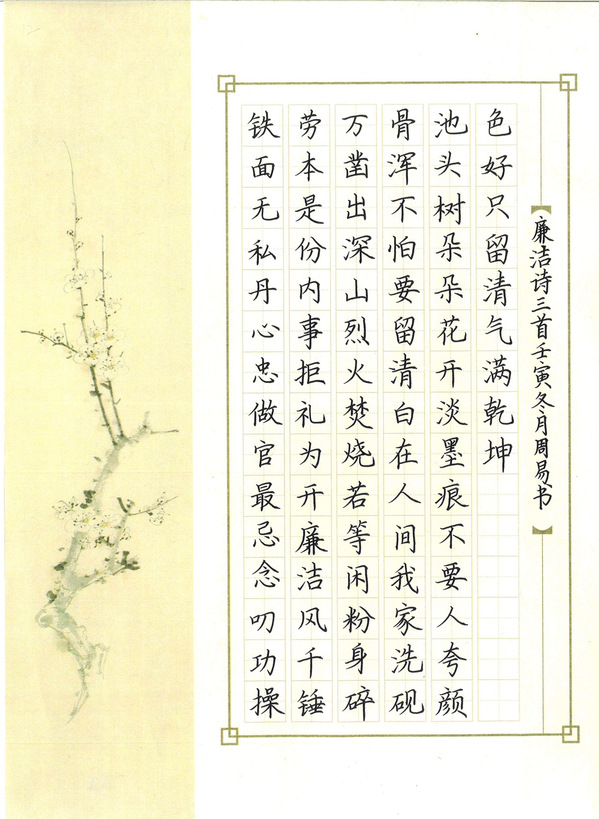 铁面无私丹心忠做官最忌念叨功操
劳本是份内事拒礼为开廉洁风千锤
万凿出深山烈火焚烧若等闲粉身碎
骨浑不怕要留清白在人间我家洗砚
池头树朵朵花开淡墨痕不要人夸颜
色好只留清气满乾坤
【廉洁诗三首壬寅冬月周易书】